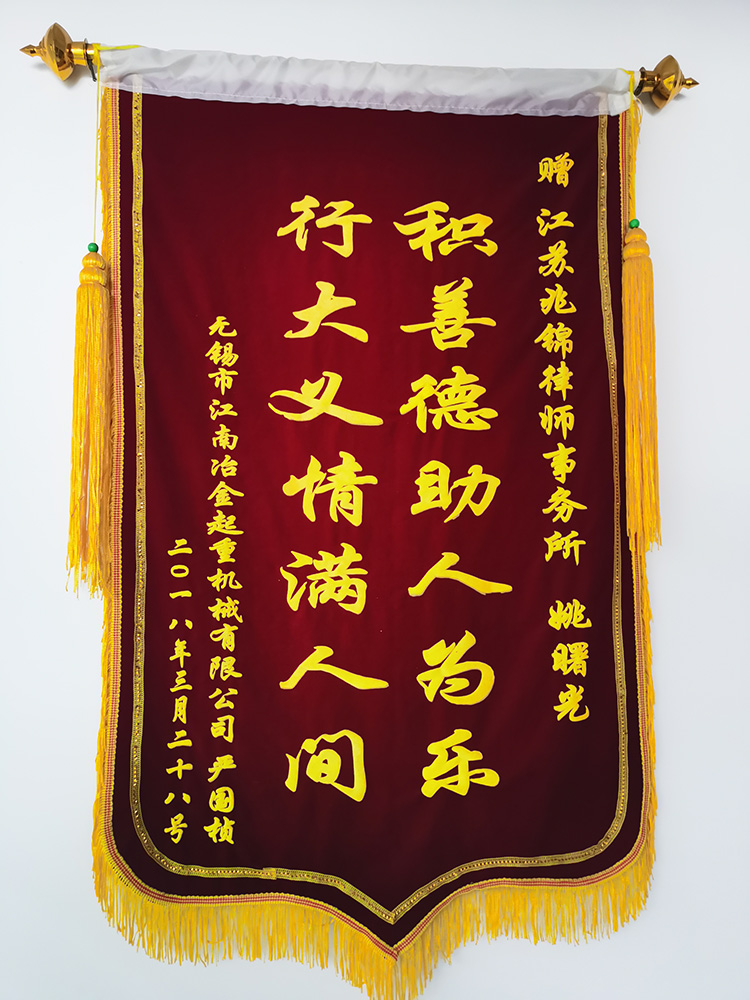 赠 江苏兆锦律师事务所 姚曙光
积善德助人为乐
行大义情满人间
无锡市江南冶金起重机械有限公司 严国桢
二〇一八年三月二十八号